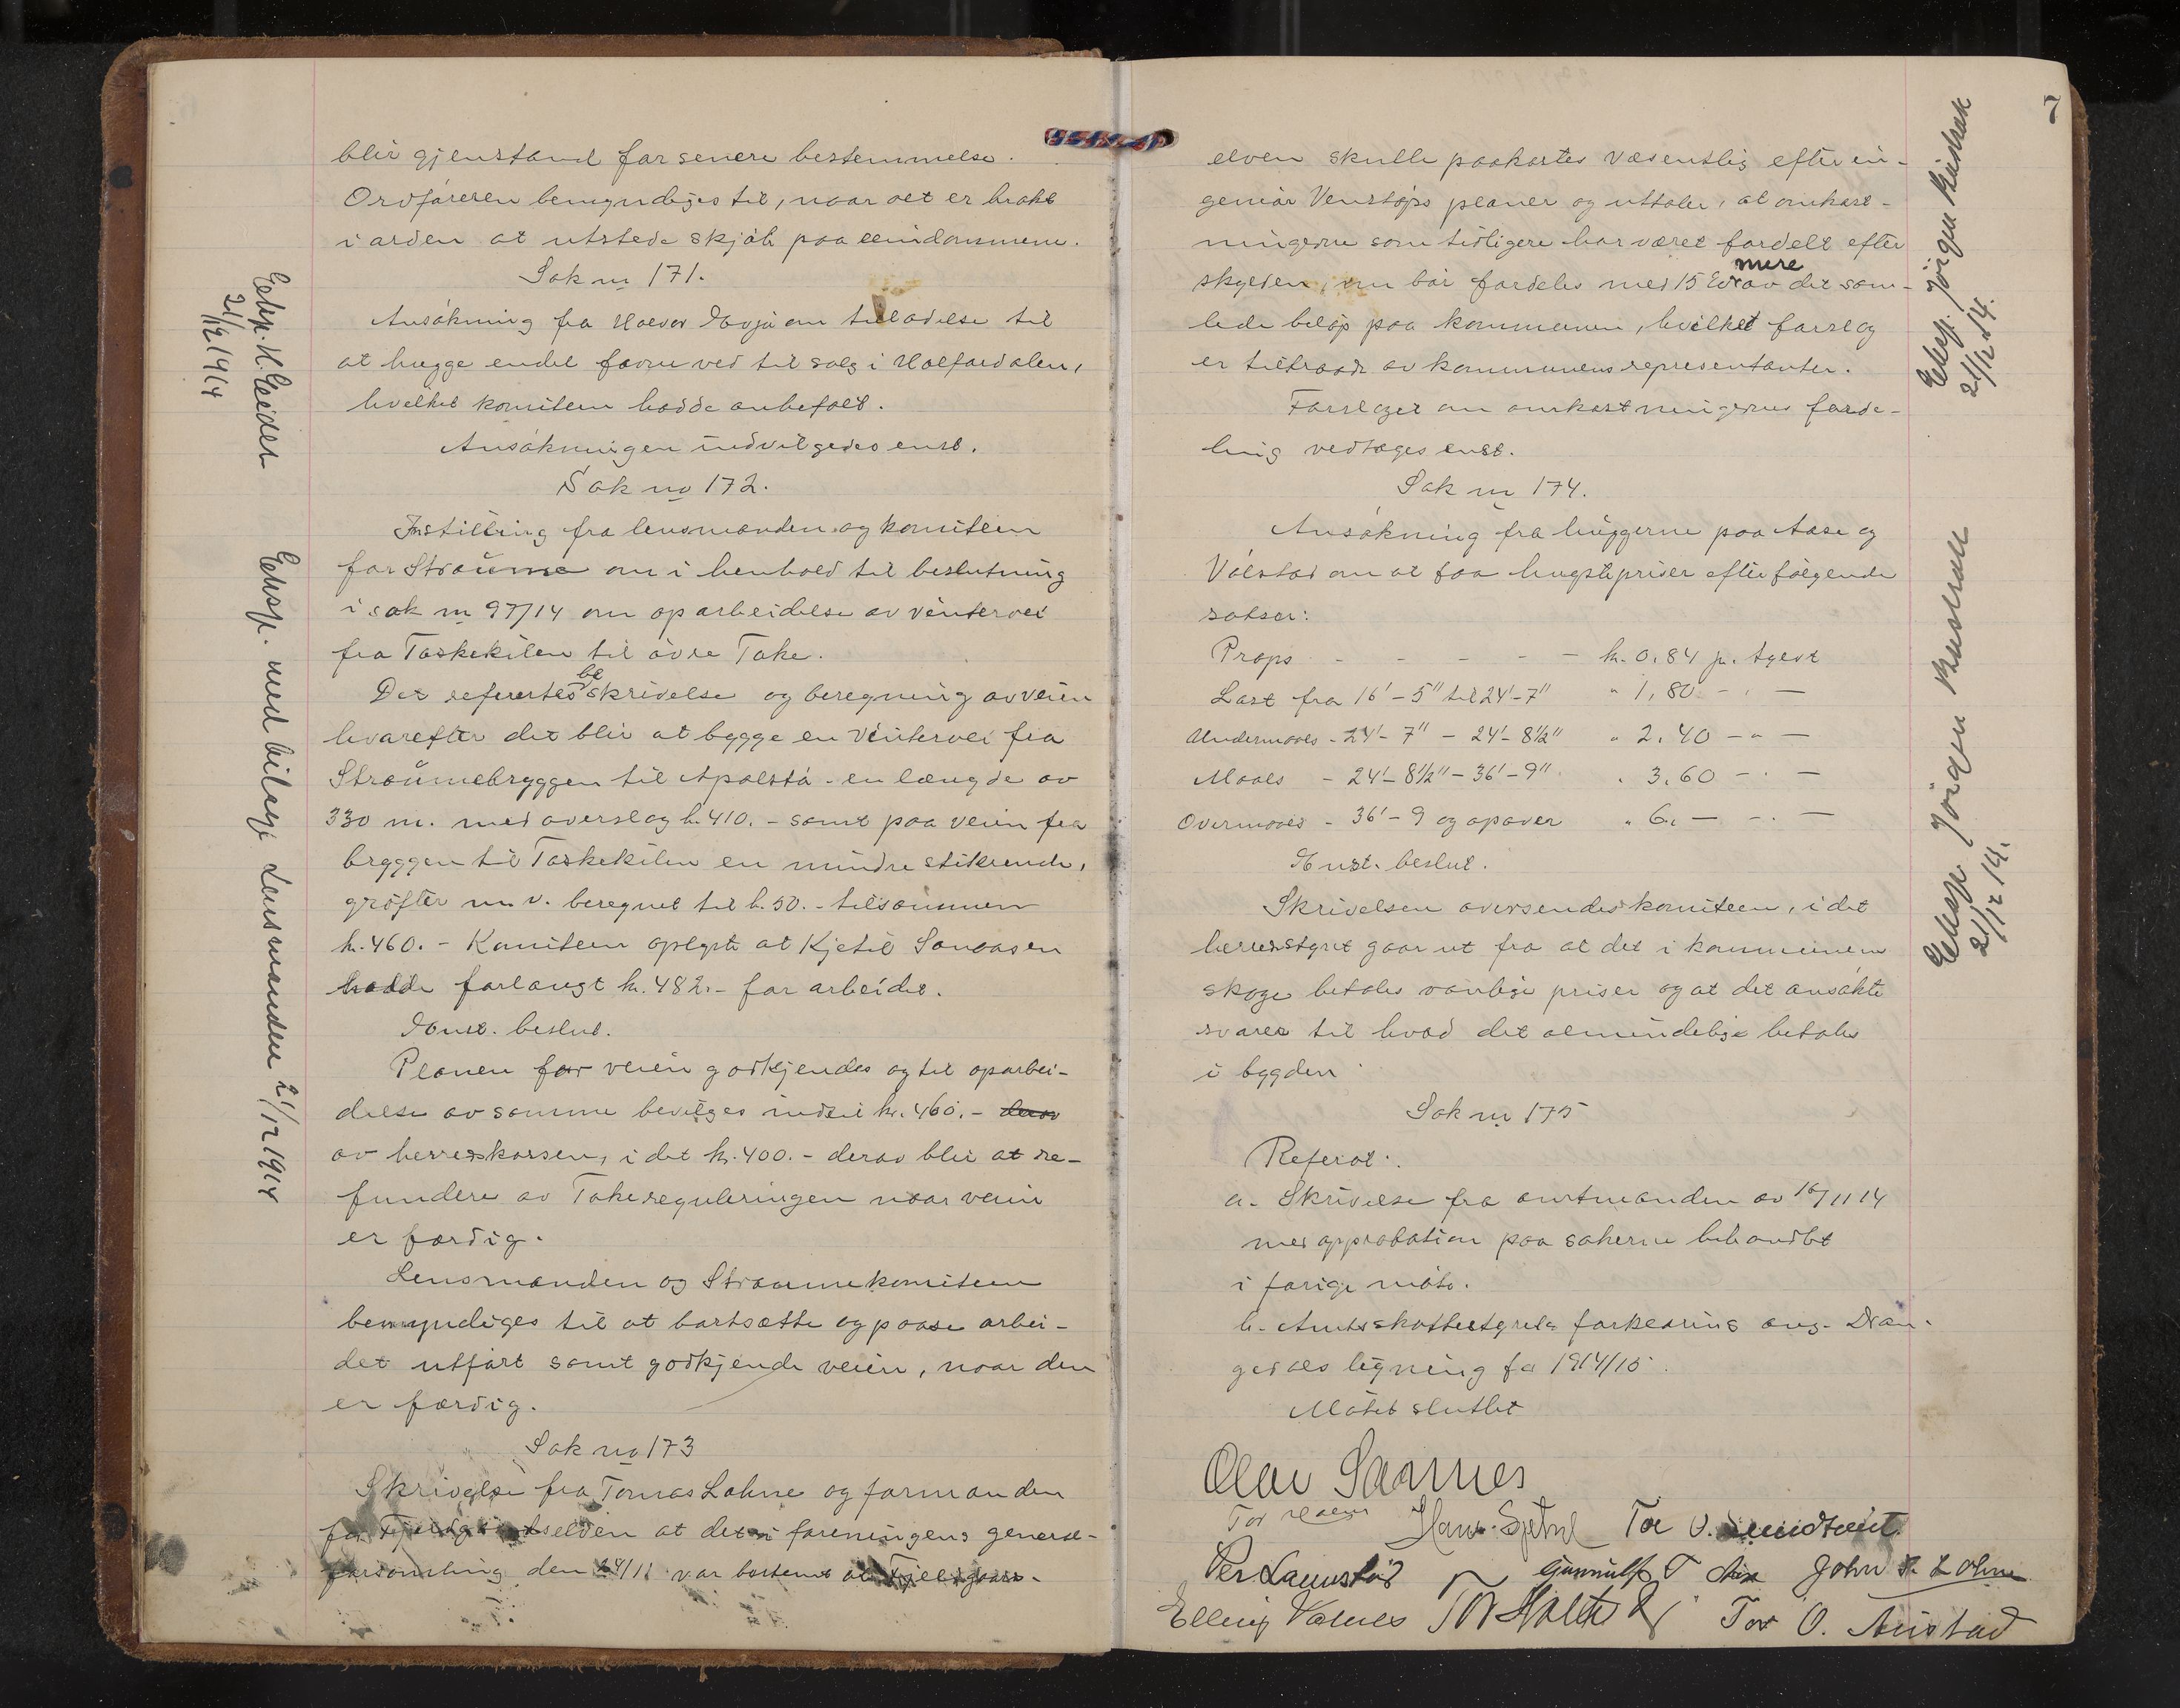 blir gjenstand for senere bestemmelse.
Ordføreren bemyndiges til, naar det er brakt
i orden at utstede skjøte paa eiendommene.
Sak no 171.
Ansökning fra Halvor om tilladelse til
at hugge endel favne ved til salg i Halfardalen,
hvilket komiteen hadde anbefalt.
Ansökningen indvilgedes enst.
Sak no 172.
Instilling fra lensmanden og komiteen
for Straume om i henhold til beslutning
i sak no 97/14 om oparbeidelse av vintervei
fra Taskekilen til övre Toke.
Det refertes be skrivelse og beregning av veien
hvorefter det blir at bygge en vintervei fra
Straumebryggen til Apalstø - en længde av
330 m. med overslag k. 410. - samt paa veien fra
bryggen til Taskekilen en mindre stikrende,
gröfter m. v. beregnet til k. 50. - tilsammen
k. 460. - Komiteen oplyste at Kjetil
hadde forlangt k. 482. - for arbeidet.
Enst. beslut.
Planen for veien godkjendes og til oparbei-
delse av samme bevilges indtil kr. 460. - derav
av herredskassen, i det kr. 400. - derav blir at re-
fundere av Tokereguleringen naar veien
er færdig.
Lensmanden og Straumekomiteen
bemyndiges til at bortsætte og paase arbei-
det utfört samt godkjende veien, naar den
er færdig.
Sak no 173
Skrivelse fra Tomas Lohne og formanden
for at det i foreningens general-
forsamling den 28/11 var bestemt at
Eksp. H. Geider
21/12 1914
Eksp. med bilag Lensmanden 21/12 1914
7
elven skulle paakostes væsentlig efter in-
geniør Venstöps planer og uttaler, at omkost-
ningerne som tidligere har været fordelt efter
skylden, nu bör fordeles med 15 % mere av det sam-
lede belöp paa kommunen, hvilket forslag
er tiltraadt av kommunens representanter.
Forslaget om omkostningernes forde-
ling vedtages enst.
Sak no 174.
Ansökning fra huggerne paa Aase og
Vølstad om at faa hugstpriser efter følgende
satser:
Props - - - - - kr. 0.84 pr. tylvt
Last fra 16' - 5" til 24' - 7" " 1,80 - " -
Undermaals - 24' - 7" - 24' - 8½" " 2.40 - " -
Maals - 24' - 8½" - 36' - 9" " 3.60 - " -
Overmaals - 36' - 9 og opover " 6. - - " -
Enst. beslut.
Skrivelsen oversendes komiteen, i det
herredsstyret gaar ut fra at det i kommunens
skoge betales vanlige priser og at det ansökte
svarer til hvad det almindelige betales
i bygden.
Sak no 175
Referat:
a. Skrivelse fra amtmanden av 16/11 14
med approbation paa sakerne behandlet
i forige möte.
b. Amtsskattestyrets forklaring ang. Dran-
gedals ligning for 1914/15.
Mötet sluttet
Olav Sannes
Tor
Per Laumstad Gunnulf T John P. Lohne
Elling Tor Holte Tor O. Austad
Eksp. Jörgen
21/12 14.
Eksp. Jörgen
21/12 14.